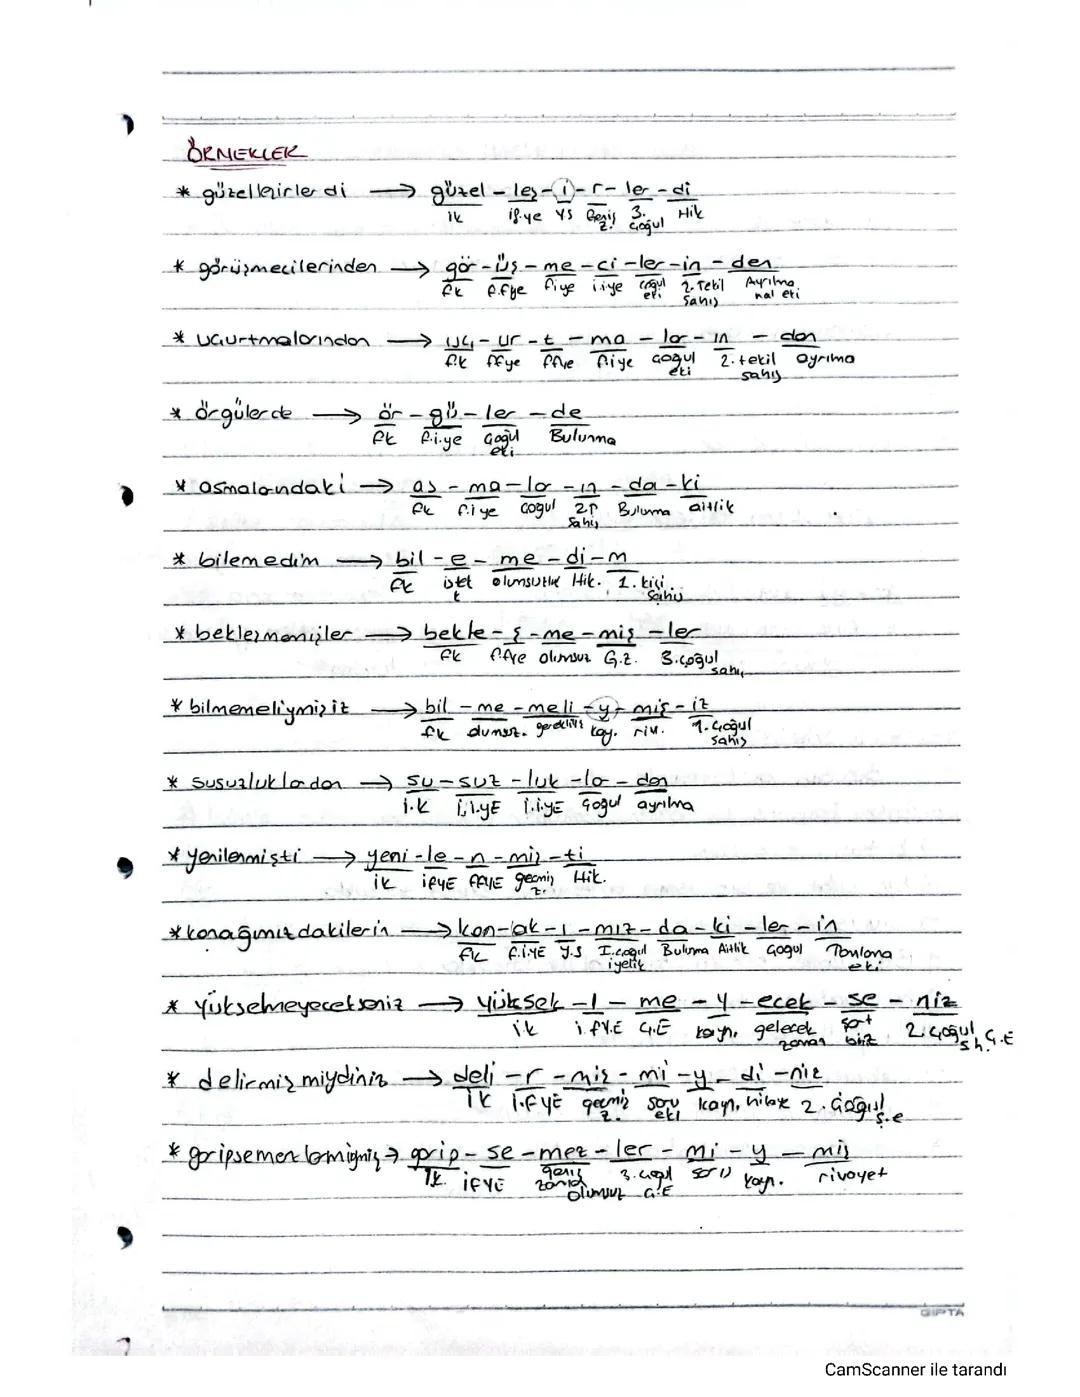 ÖRNEKLER
* güzelleşirlerdi → güzel - leş - i - r - ler - di
ik if.ye YS Geniş z. 3. çoğul Hik
* görüşmecilerinden → gör - üş - me - ci - ler - in - den
fk f.fye fiye i.iye çoğul eki 2. tekil şahıs Ayrılma hal eki
* uçurtmalarından → uç - ur - t - ma - lar - ın - dan
f.k ffye ffye f.iye çoğul eki 2. tekil şahıs ayrılma
* örgülerde → ör - gü - ler - de
fk f.i.ye çoğul eki Bulunma
* asmalarındaki → as - ma - lar - ın - da - ki
fk f.iye çoğul 2.T şahıs Bulunma aitlik
* bilemedim → bil - e - me - di - m
fk olumsuzluk Hik. 1. kişi şahıs
* bekleşmemişler → bekle - ş - me - miş - ler
fk f.fye olumsuz G.Z. 3. çoğul şahıs
* bilmemeliymişiz → bil - me - meli - y - miş - iz
fk olumsz. gereklilik kay. riv. 1. çoğul şahıs
* susuzluklardan → su - suz - luk - la - dan
i.k i.i.yE i.i.yE çoğul ayrılma
* yenilenmişti → yeni - le - n - miş - ti
ik ifYE ffYE geçmiş z. Hik.
* konağımızdakilerin → kon - ak - ı - mız - da - ki - ler - in
fk f.i.YE y.s I. çoğul iyelik Bulunma Aitlik Çoğul Tamlama eki
* yükselmeyecekseniz → yüksek - l - me - y - ecek - se - niz
ik i.fY.E Ç.E kayn. gelecek zaman şart 2. çoğul şh. Ç.E
* delirmiş miydiniz → deli - r - miş - mi - y - di - niz
ik i.fYE geçmiş z. soru eki kayn. hikaye 2. çoğul ş.e
* garipsemezlermiymiş → garip - se - mez - ler - mi - y - miş
ik ifYE geniş zaman olumsuz 3. çoğul Ç.E soru kayn. rivayet
GIPTA
CamScanner ile tarandı